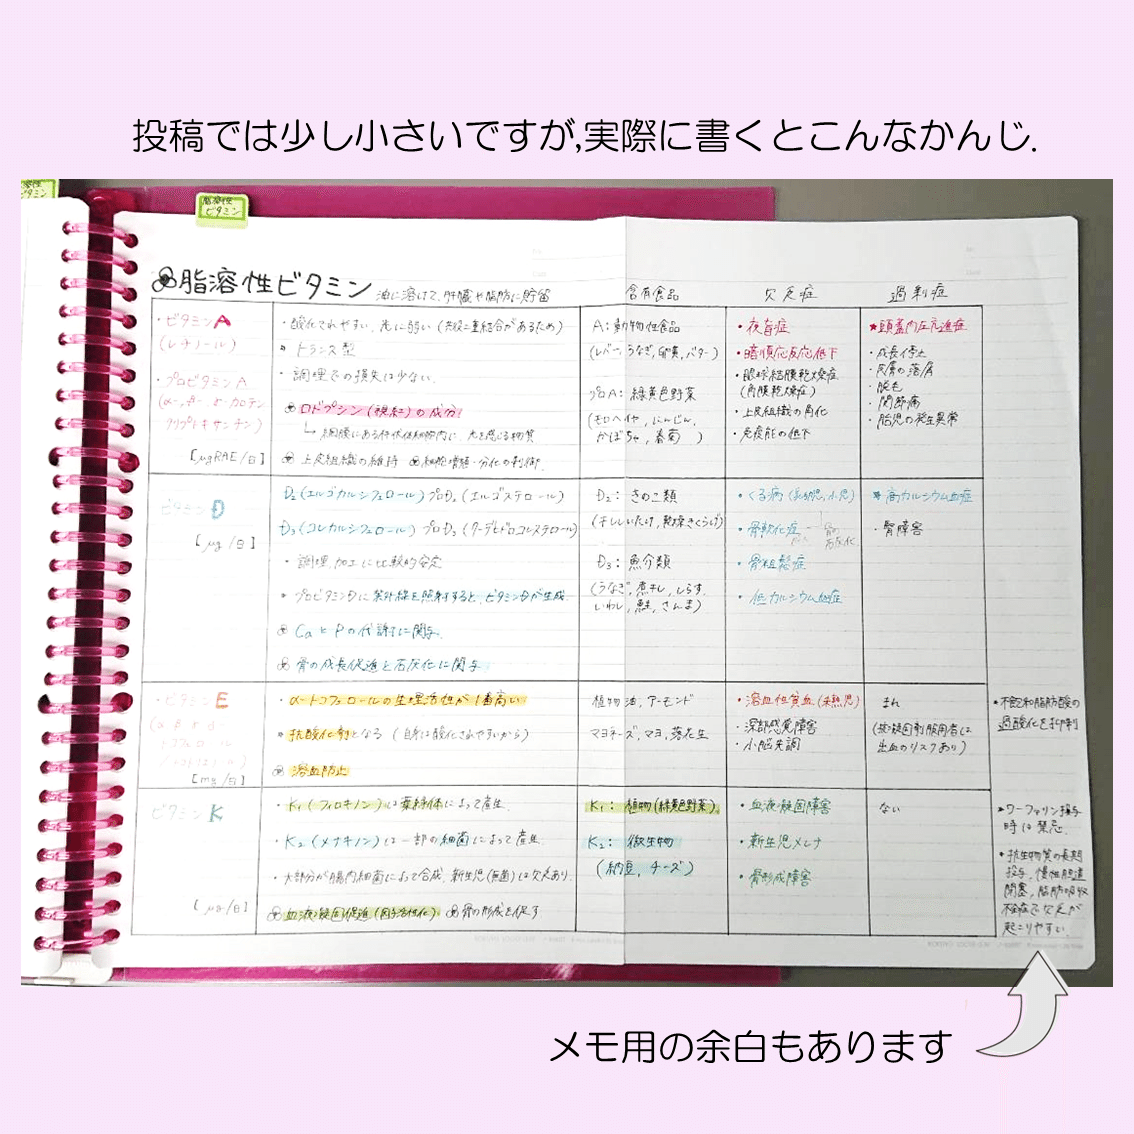 投稿では少し小さいですが,実際に書くとこんなかんじ.
脂溶性
ビタミン
脂溶性ビタミン 油に溶けて、肝臓や脂肪に貯留
含有食品
欠乏症
過剰症
・ビタミンA
(レチノール)
・プロビタミンA
クリプトキサンチン)
[μgRAE/日]
・酸化されやすい、光に弱い(共役二重結合があるため)
・トランス型
・調理での損失は少ない.
ロドプシン(視紅)の成分
光を感じる物質
上皮組織の維持 細胞増殖・分化の制御.
A:動物性食品
(レバー,うなぎ,卵黄,バター)
プロA:緑黄色野菜
(モロヘイヤ,にんじん,
かぼちゃ,春菊)
・夜盲症
・暗順応反応低下
・眼球結膜乾燥症
(角膜乾燥症)
・上皮組織の角化
・免疫能の低下
★頭蓋内圧亢進症
・成長停止
・皮膚の落屑
・脱毛
・関節痛
・胎児の発生異常
ビタミンD
[μg/日]
D₂(エルゴカルシフェロール)プロD₂(エルゴステロール)
D₃(コレカルシフェロール)プロD₃(7-デヒドロコレステロール)
・調理,加工に比較的安定
・プロビタミンDに紫外線を照射すると、ビタミンDが生成.
CaとPの代謝に関与.
骨の成長促進と石灰化に関与
D₂:きのこ類
(干ししいたけ,乾燥きくらげ)
D₃:魚介類
(うなぎ,煮干し,しらす,
いわし,鮭,さんま)
・くる病(乳幼児,小児)
・骨軟化症
・骨粗鬆症
・低カルシウム血症
★高カルシウム血症
・腎障害
・ビタミンE
[mg/日]
・α-トコフェロールの生理活性が1番高い
・抗酸化剤となる(自身は酸化されやすいから)
溶血防止
植物油,アーモンド
マヨネーズ,マヨ,落花生
・溶血性貧血(未熟児)
・深部感覚障害
・小脳失調
まれ
(抗凝固剤服用者は
出血のリスクあり)
・不飽和脂肪酸の
過酸化を抑制
ビタミンK
[μg/日]
・K₁(フィロキノン)は葉緑体によって産生.
・K₂(メナキノン)は一部の細菌によって産生.
・大部分が腸内細菌によって合成.新生児(無菌)は欠乏あり.
血液凝固促進(因子活性化). 骨の形成を促す
K₁:植物(緑黄色野菜).
K₂:微生物
(納豆,チーズ)
・血液凝固障害
・新生児メレナ
・骨形成障害
ない
★ワーファリン投与
時は禁忌.
・抗生物質の長期
投与,慢性胆道
閉塞,脂肪吸収
不全症で欠乏が
起こりやすい.
メモ用の余白もあります